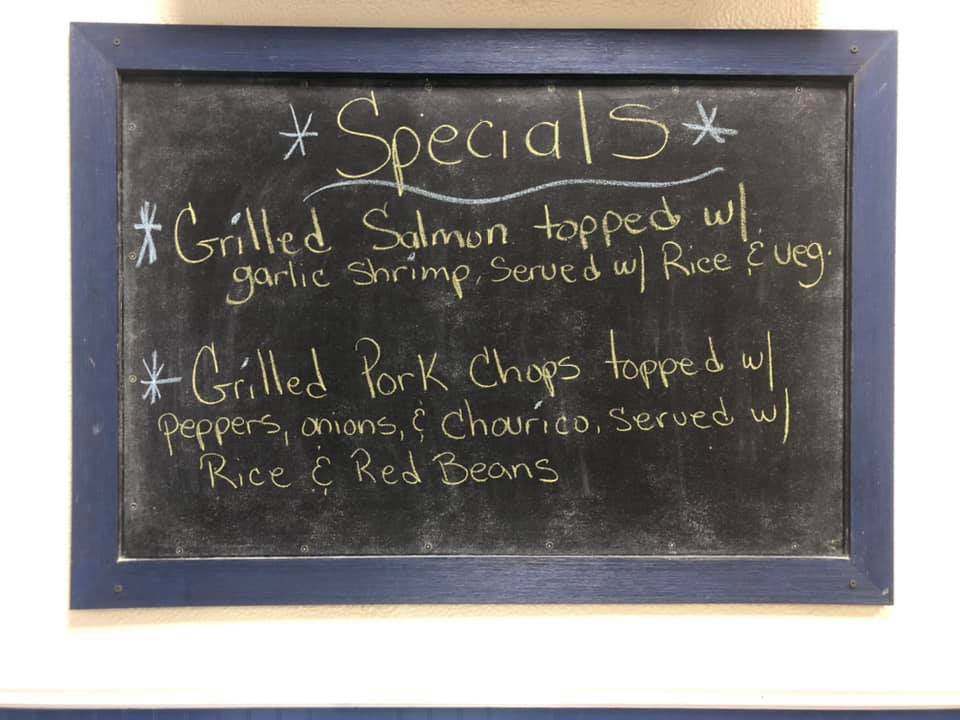 * Specials *
* Grilled Salmon topped w/
garlic shrimp, Served w/ Rice & veg.
* Grilled Pork Chops topped w/
peppers, onions, & Chouriço, served w/
Rice & Red Beans